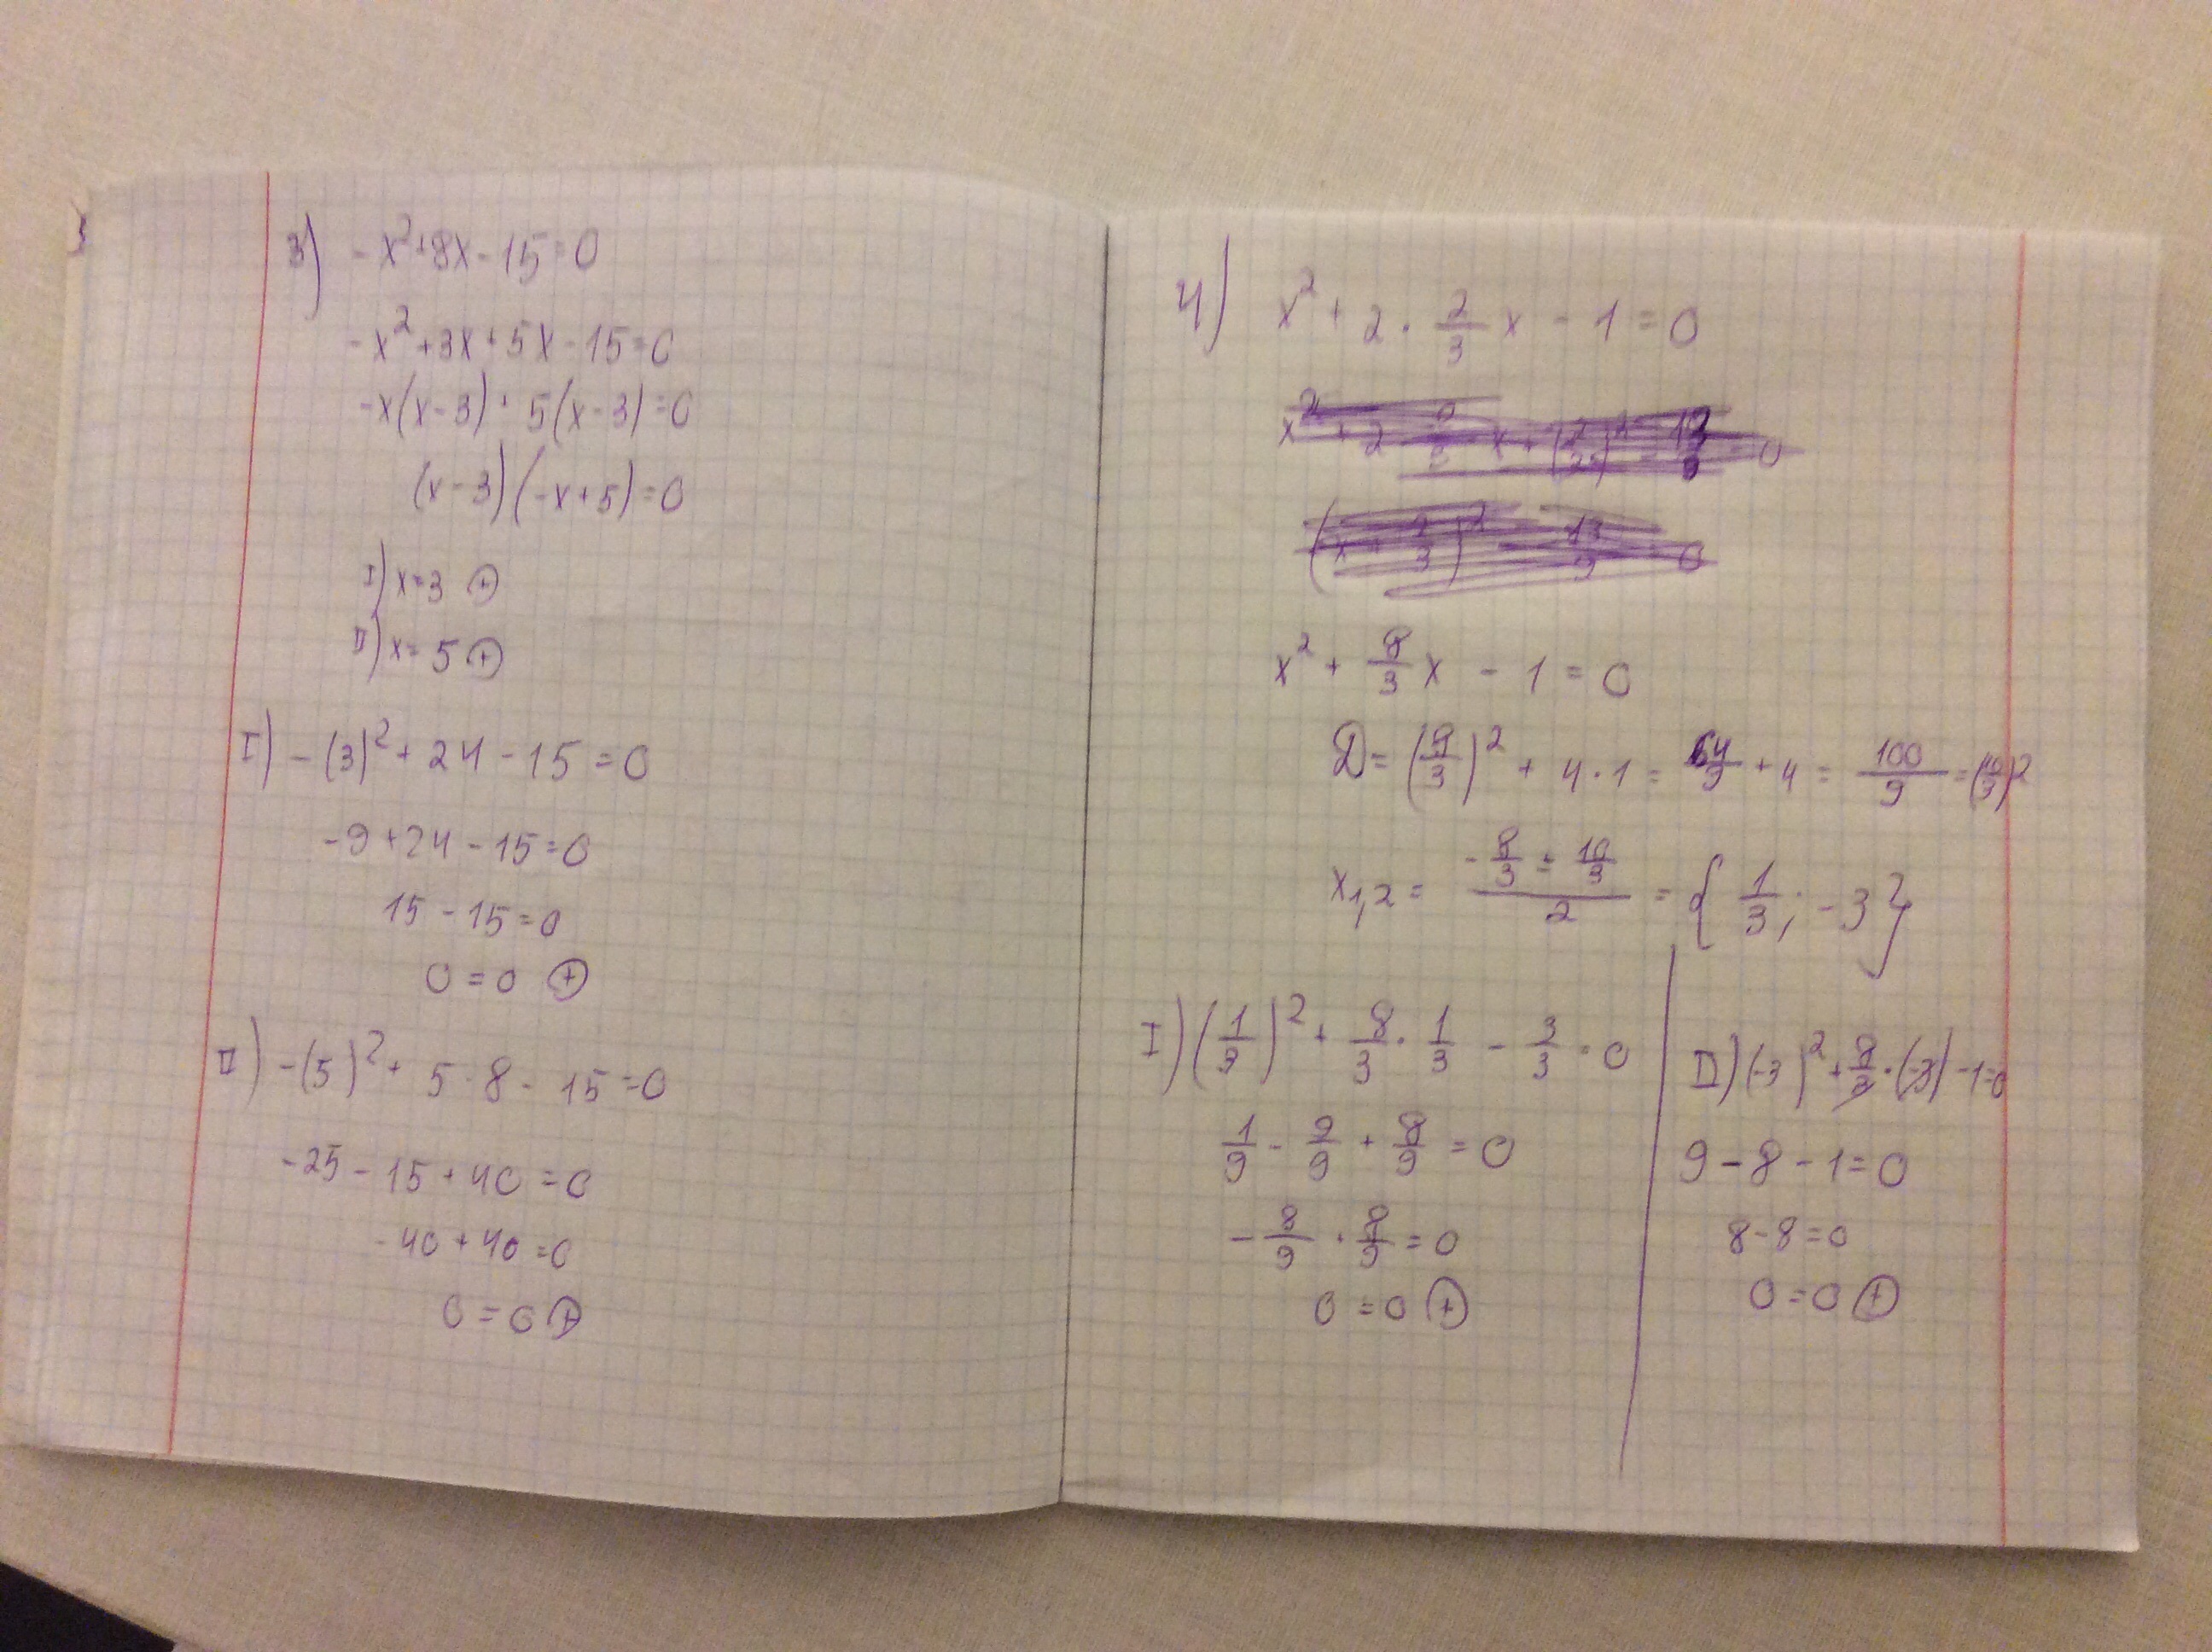 3) -x²+8x-15=0
-x²+3x+5x-15=0
-x(x-3)+5(x-3)=0
(x-3)(-x+5)=0
I) x=3 ⊕
II) x=5 ⊕
I) -(3)²+24-15=0
-9+24-15=0
15-15=0
0=0 ⊕
II) -(5)²+5·8-15=0
-25-15+40=0
-40+40=0
0=0 ⊕
4) x²+2·2/3x-1=0
x²+8/3x-1=0
D=(8/3)²+4·1=64/9+4=100/9=(10/3)²
x1,2=(-8/3±10/3)/2={1/3;-3}
I) (1/3)²+8/3·1/3-3/3=0
1/9-9/9+8/9=0
-8/9+8/9=0
0=0 ⊕
II) (-3)²+8/3·(-3)-1=0
9-8-1=0
8-8=0
0=0 ⊕